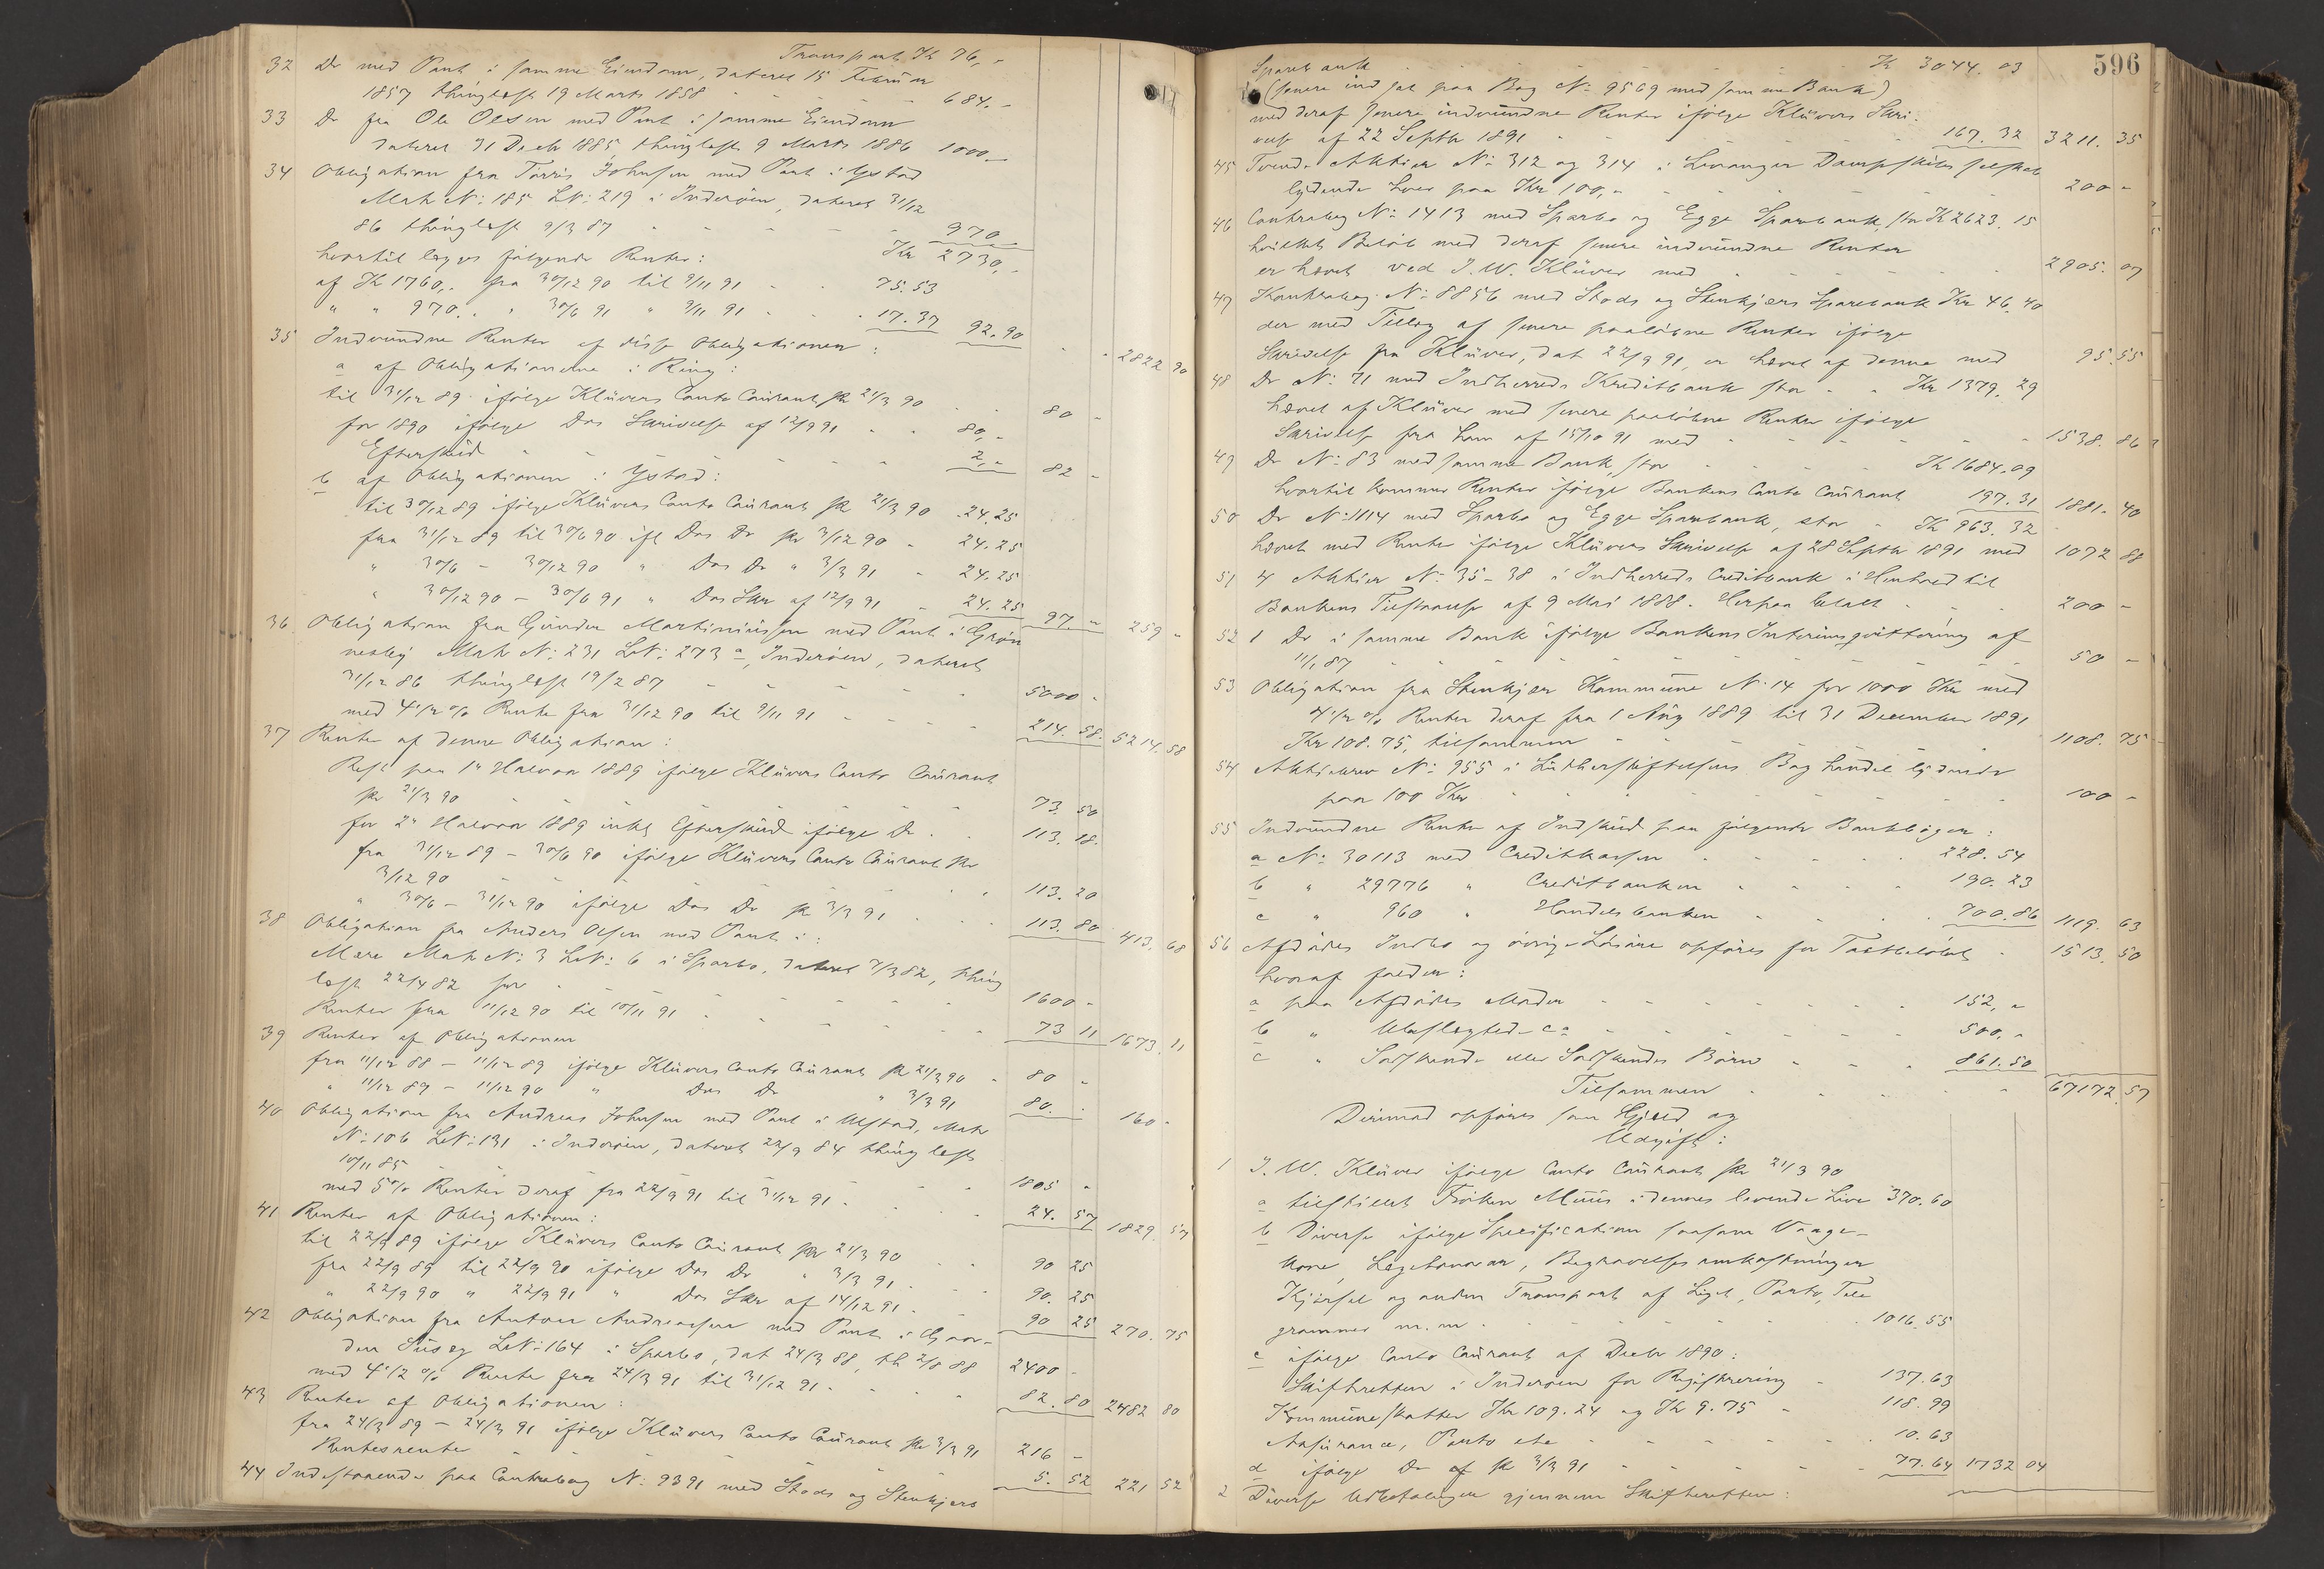 Transport Kr 76,-
32 Do med Pant i samme Eiendom, dateret 15 Februar
1857 thinglæst 19 Marts 1858 - - - - 684.-
33 Do fra Ole Olsen med Pant i samme Eiendom
dateret 31 Decbr 1885 thinglæst 9 Marts 1886 1000.-
34 Obligation fra Tørris Johnsen med Pant i Ystad
Matr No: 185 LNo: 219 i Inderøen, dateret 31/12
86 thinglæst 9/3 87 - - - - - 970.-
hvortil lægges følgende Renter: Kr 2730,-
af Kr 1760,. fra 30/12 90 til 9/11 91 - - 75.53
" " 970. . " 30/6 91 " 9/11 91 - - - 17.37 92.90 2822 90
35 Indvundne Renter af disse Obligationer:
a af Obligationerne i Ring:
til 31/12 89 ifølge Klüvers Conto Courant pr 21/3 90 - - 80 -
for 1890 ifølge Ds Skrivelse af 12/9 91 - - 80,-
Efterskud - - - - - - - 2,- 82 -
b af Obligationen i Ystad:
til 30/12 89 ifølge Klüvers Conto Courant pr 21/3 90 24.25
fra 31/12 89 til 30/6 90 ifl Ds Do pr 3/12 90 - 24.25
" 30/6 - 30/12 90 " Ds Do " 3/3 91 - 24.25
" 30/12 90 - 30/6 91 " Ds Skr af 12/9 91 - 24.25 97. - 259 -
36 Obligation fra Gunder Martiniussen med Pant i Grøn
nesby Matr No: 231 LNo: 273 a, Inderøen, dateret
31/12 86 thinglæst 19/2 87 - - - - - 5000 -
med 4 1/2 % Rente fra 31/12 90 til 9/11 91 - - - - 214. 58. 5214. 58
37 Renter af denne Obligation:
Rest paa 1ste Halvaar 1889 ifølge Klüvers Conto Courant
pr 21/3 90 - - - - - - - 73. 50
for 2det Halvaar 1889 inkl Efterskud ifølge Do - - 113. 18.
fra 31/12 89 - 30/6 90 ifølge Klüvers Conto Courant pr
3/12 90 - - - - - - - 113. 20
" 30/6 - 31/12 90 ifølge Ds Do pr 3/3 91 - - - 113. 80 413. 68
38 Obligation fra Anders Olsen med Pant i:
Mære Matr No: 3 LNo: 6 i Sparbo, dateret 7/3 82, thing
læst 22/4 82 for - - - - - - 1600 -
Renter fra 11/12 90 til 10/11 91 - - - - - 73 11 1673. 11
39 Renter af Obligationen
fra 11/12 88 - 11/12 89 ifølge Klüvers Conto Courant pr 21/3 90 - 80 -
" 11/12 89 - 11/12 90 " Ds Do " 3/3 91 80. - 160 -
40 Obligation fra Andreas Johnsen med Pant i Ulstad, Matr
No: 106 LNo: 131 i Inderøen, dateret 22/9 84 thinglæst
10/11 85 - - - - - - - 1805 -
med 5 % Renter deraf fra 22/9 91 til 31/12 91 - - - - 24. 57 1829. 57
41 Renter af Obligationen:
til 22/9 89 ifølge Klüvers Conto Courant pr 21/3 90 - - 90 25
fra 22/9 89 til 22/9 90 ifølge Ds Do " 3/3 91 - - - 90. 25
" 22/9 90 " 22/9 91 " Ds Skr af 14/12 91 - - 90 25 270. 75
42 Obligation fra Anton Andreassen med Pant i
LNo: 164 i Sparbo, dat 24/3 88, th 2/8 88 2400 -
med 4 1/2 % Rente fra 24/3 91 til 31/12 91 - - - - 82. 80 2482 80
43 Renter af Obligationen:
fra 24/3 89 - 24/3 91 ifølge Klüvers Conto Courant pr 3/3 91 216 -
Rentesrente - - - - - - - 5. 52 221 52
44 Indestaaende paa Contrabog No: 9391 med Stods og Stenkjærs
596
Sparebank - - - - - - Kr 3044. 03
(senere indsat paa Bog No 9569 med samme Bank)
med deraf senere indvundne Renter ifølge Klüvers Skri-
velse af 22 Septbr 1891 - - - - - 167. 32 3211. 35
45 Tvende Aktier No: 312 og 314 i Levanger Dampskibsselskab
lydende hver paa Kr 100,- - - - - - - 200 -
46 Contrabog No: 1413 med Sparbo og Egge Sparebank, stor Kr 2623. 15
hvilket Beløb med deraf senere indvundne Renter
er hævet ved J. W. Klüver med - - - - - - 2905. 07
47 Kontrabog No: 8856 med Stods og Stenkjærs Sparebank Kr 46,40
der med Tillæg af senere paaløbne Renter ifølge
Skrivelse fra Klüver, dat 22/9 91, er hævet af denne med 95. 55
48 Do No: 71 med Indherreds Kreditbank stor - - Kr 1379. 29
hævet af Klüver med senere paaløbne Renter ifølge
Skrivelse fra ham af 15/10 91 med - - - - - - 1538. 86
49 Do No: 83 med samme Bank, stor - - - - Kr 1684.09
hvortil kommer Renter ifølge Bankens Conto Courant 197. 31 1881. 40
50 Do No: 1114 med Sparbo og Egge Sparebank, stor - Kr 963. 32
hævet med Rente ifølge Klüvers Skrivelse af 28 Septbr 1891 med 1072 88
51 4 Aktier No: 35-38 i Indherreds Creditbank i Henhold til
Bankens Tilstaaelse af 9 Mai 1888. Herpaa betalt - - - 200 -
52 1 Do i samme Bank ifølge Bankens Interimsqvittering af
11/1 87 - - - - - - - - 50 -
53 Obligation fra Stenkjær Kommune No: 14 for 1000 Kr med
4 1/2 % Renter deraf fra 1 Aug 1889 til 31 December 1891
Kr 108.75, tilsammen - - - - - - 1108. 75
54 Aktiebrev No: 955 i Lutherstiftelsens Boghandel lydende
paa 100 Kr - - - - - - - - 100 -
55 Indvundne Renter af Indskud paa følgende Bankbøger:
a No: 30113 med Creditkassen - - - - - 228. 54
b " 29776 " Creditbanken - - - - 190. 23
c " 960 " Handelsbanken - - - - 700. 86 1119. 63
56 Afdødes Indbo og øvrige Løsøre opføres for Taxtbeløbet - 1513. 50
hvoraf falder:
a paa Afdødes Moder - - - - - - - 152,-
b " - - - - - - 500,-
c " Sødskende eller Sødskendes Børn - - - 861.50
Tilsammen - - - - - 67172. 57
Derimod opføres som Gjæld og
Udgift:
1 J. W. Klüver ifølge Conto Courant pr 21/3 90
a tilstillet Frøken Müus i dennes levende Live 370. 60
b Diverse ifølge Specification saasom Vaage-
kone, Lægehonorar, Begravelsesomkostninger
Kjørsel og anden Transport af Liget, Porto, Tele
grammer m. m - - - - - - - 1016. 55
c ifølge Conto Courant af Decbr 1890:
Skifteretten i Inderøen for Registrering - 137. 63
Kommuneskatter Kr 109. 24 og Kr 9. 75 - 118. 99
Assurance, Porto etc - - - - - - 10. 63
d ifølge Do af pr 3/3 91 - - - - - 77. 64 1732 04
2 Diverse Udbetalinger gjennem Skifteretten: